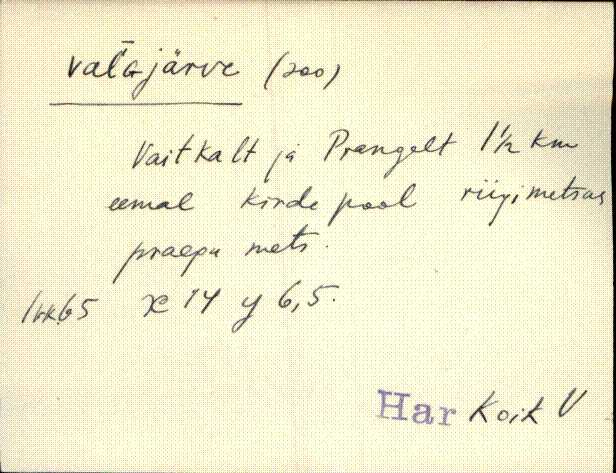 valGjärve (200)
Vaitkalt ja Prangelt 1½ km
eemal kirde pool riigimetsas
praegu mets.
65 x 14 y 6,5.
Har Koik V